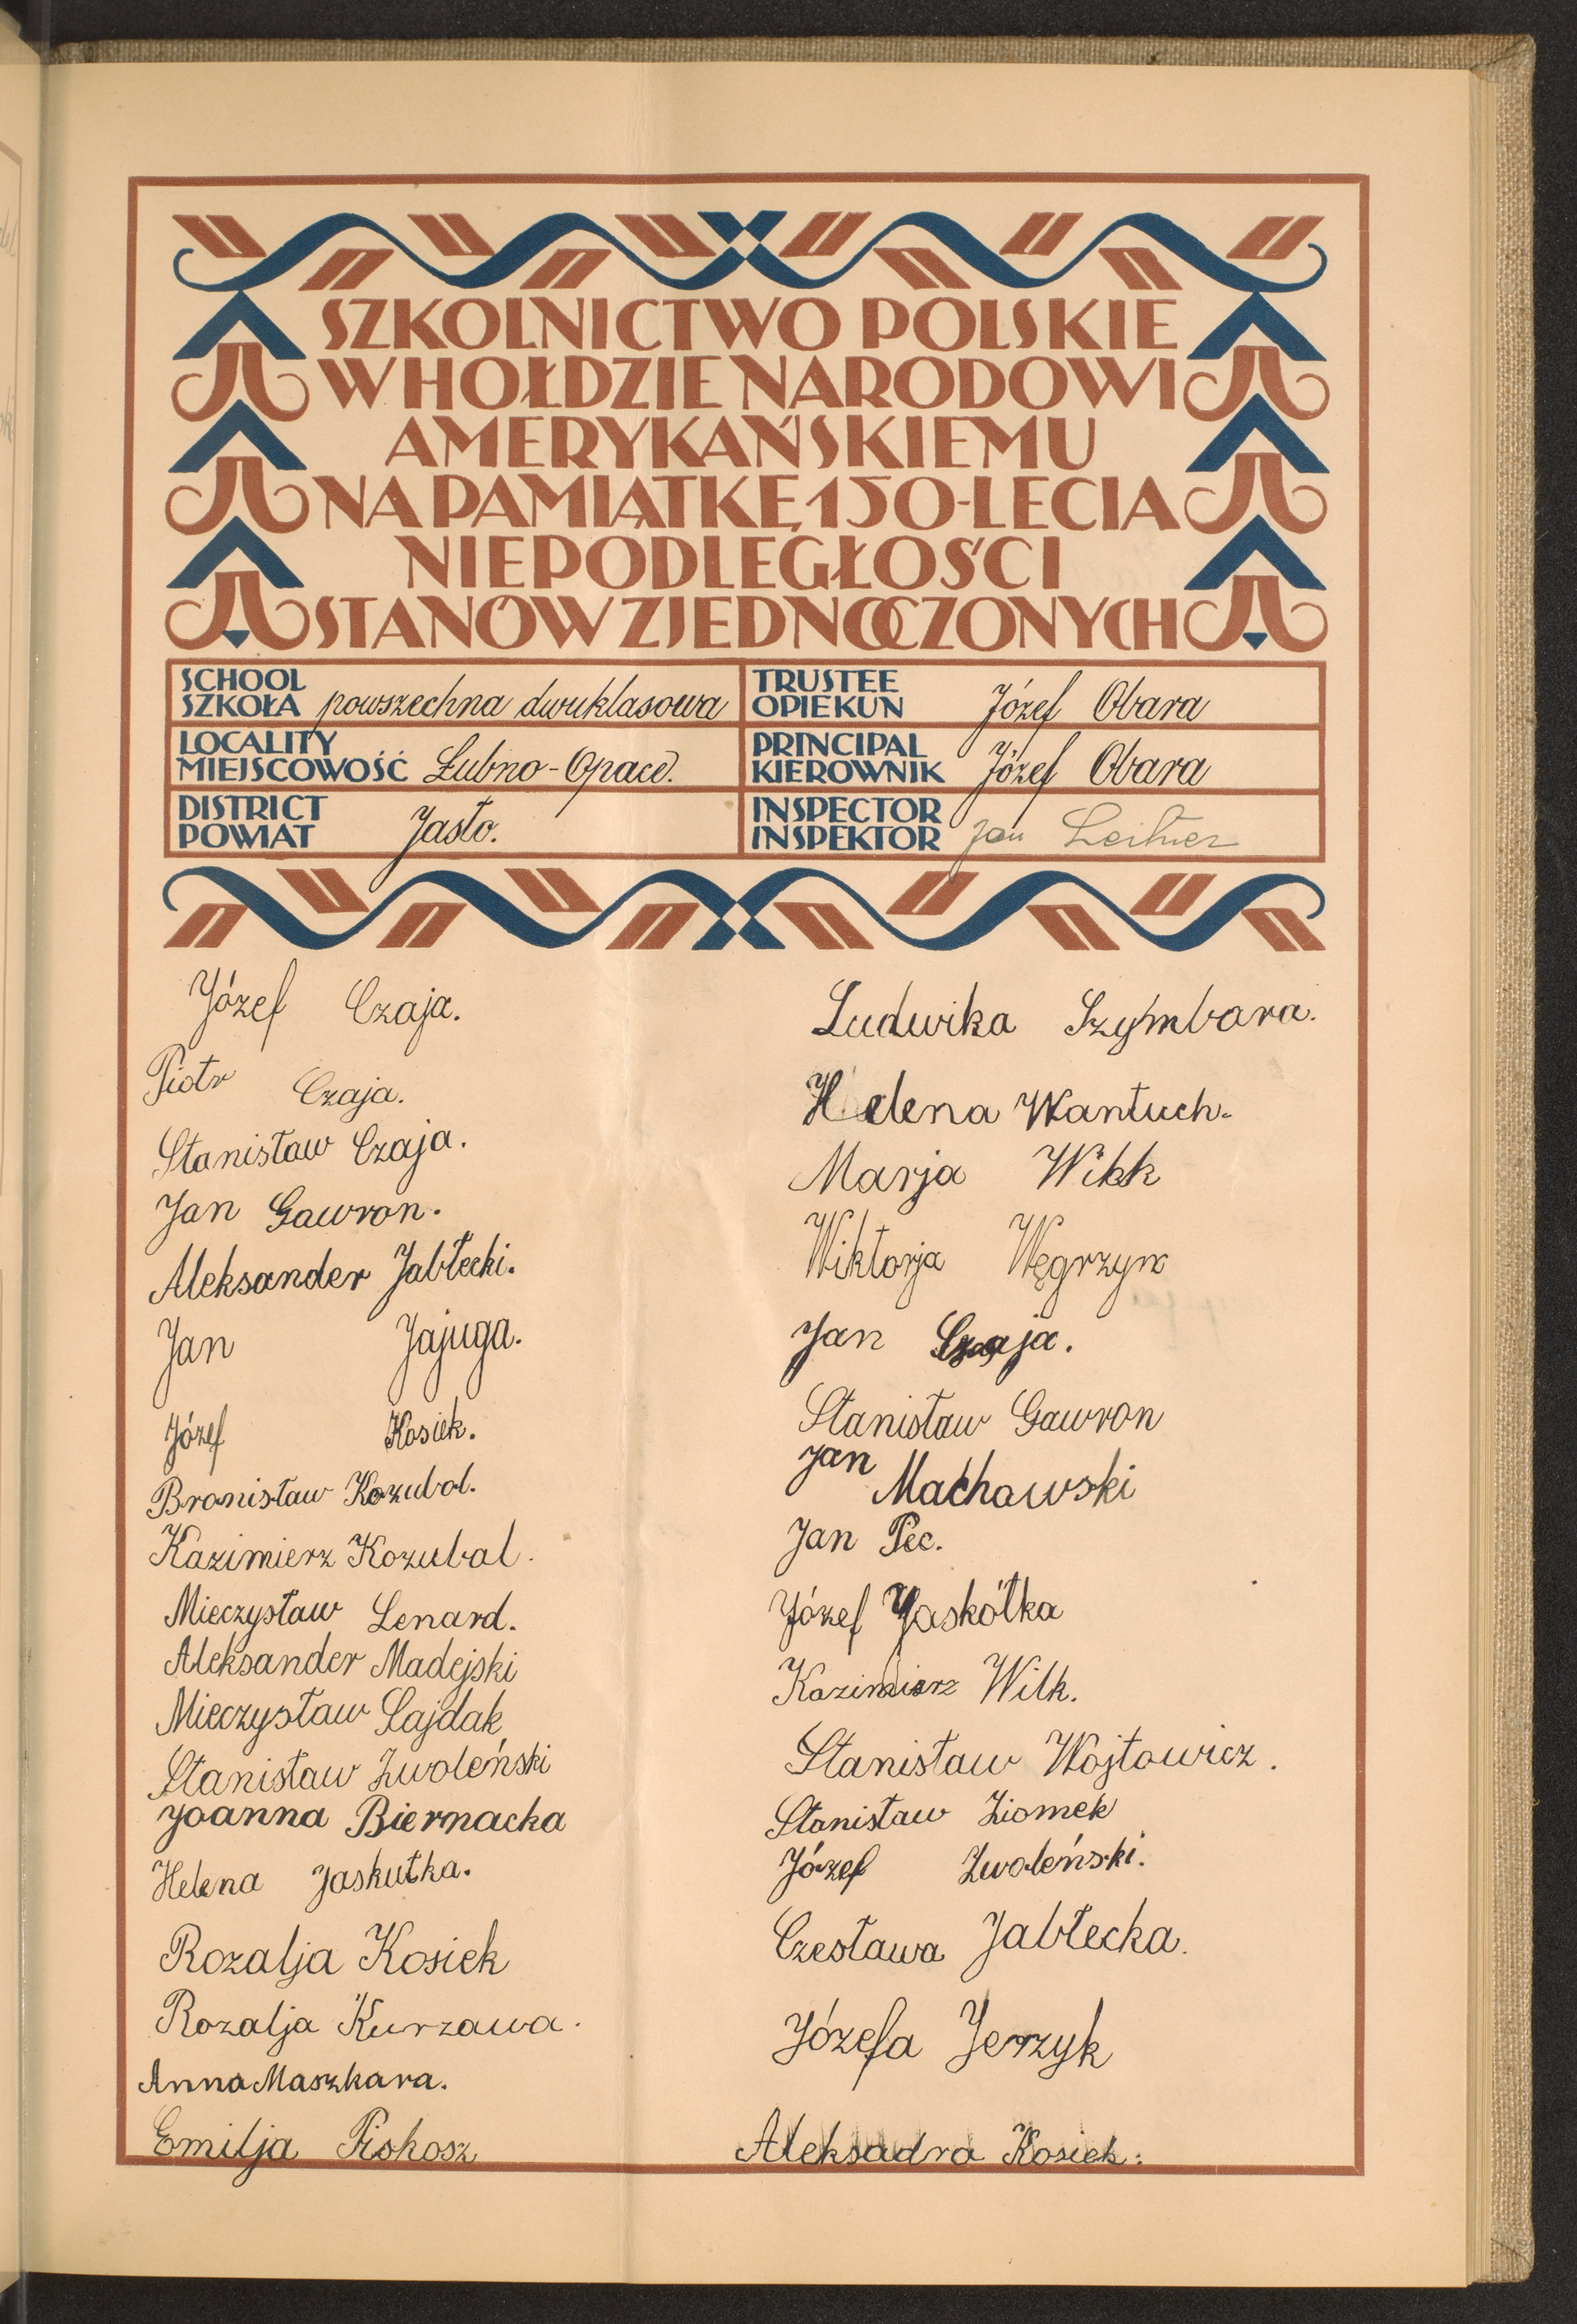 SZKOLNICTWO POLSKIE
W HOŁDZIE NARODOWI
AMERYKAŃSKIEMU
NA PAMIĄTKĘ 150-LECIA
NIEPODLEGŁOŚCI
STANÓW ZJEDNOCZONYCH
SCHOOL
SZKOŁA powszechna dwuklasowa
TRUSTEE
OPIEKUN Józef Obara
LOCALITY
MIEJSCOWOŚĆ Łubno-Opace.
PRINCIPAL
KIEROWNIK Józef Obara
DISTRICT
POWIAT Jasło.
INSPECTOR
INSPEKTOR Jan Leitner
Józef Czaja.
Piotr Czaja.
Stanisław Czaja.
Jan Gawron.
Aleksander Jabłecki.
Jan Jajuga.
Józef Kosiek.
Bronisław Kozubal.
Kazimierz Kozubal.
Mieczysław Lenard.
Aleksander Madejski
Mieczysław Sajdak
Stanisław Zwoleński
Joanna Biernacka
Helena Jaskułka.
Rozalja Kosiek
Rozalja Kurzawa.
Anna Maszkara.
Emilja Piskosz
Ludwika Szymbara.
Helena Wantuch.
Marja Wikk
Wiktorja Węgrzyn
Jan Czaja.
Stanisław Gawron
Jan Machowski
Jan Pec.
Józef Jaskółka
Kazimierz Wilk.
Stanisław Wojtowicz.
Stanisław Ziomek
Józef Zwoleński.
Czesława Jabłecka.
Józefa Jerzyk
Aleksadra Kosiek.